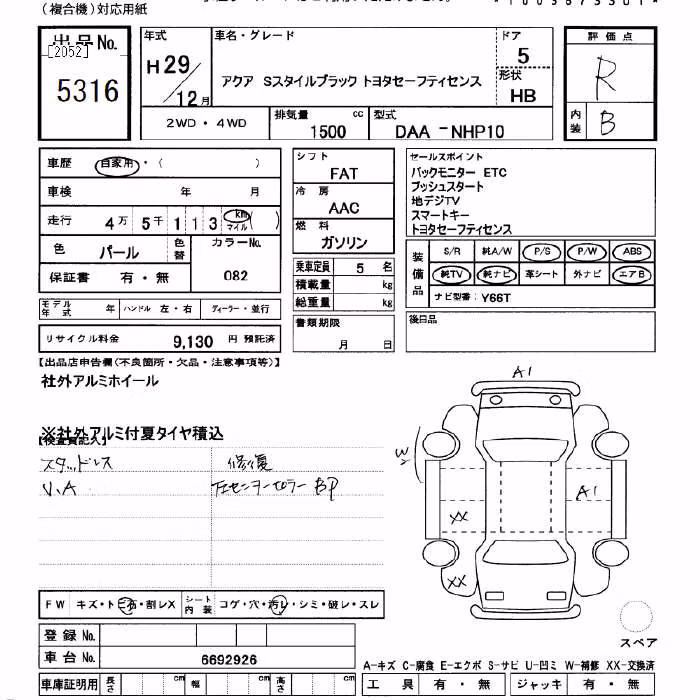 (複合機)対応用紙
出品No.
[2052]
5316
年式
H29/12月
車名・グレード
アクア Sスタイルブラック トヨタセーフティセンス
ドア
5
形状
HB
評価点
R
内装
B
2WD・4WD
排気量
1500 cc
型式
DAA -NHP10
車歴 自家用・( )
車検 年 月
走行 4万 5千 1 1 3 km マイル ( )
色 パール
色替
カラーNo.
082
保証書 有・無
モデル年式 年 ハンドル 左・右 ディーラー・並行
リサイクル料金 9,130 円 預託済
シフト
FAT
冷房
AAC
燃料
ガソリン
乗車定員 5 名
積載量 kg
総重量 kg
書類期限
月 日
セールスポイント
バックモニター ETC
プッシュスタート
地デジTV
スマートキー
トヨタセーフティセンス
装備品
S/R 純A/W P/S P/W ABS
純TV 純ナビ 革シート 外ナビ エアB
ナビ型番: Y66T
後日品
【出品店申告欄(不良箇所・欠品・注意事項等)】
社外アルミホイール
※社外アルミ付夏タイヤ積込
【検査員記入】
スタッドレス
修復
V、A
左センターピラー BP
A1
W
A1
XX
XX
スペア
FW キズ・トビ石・割レX
シート内装 コゲ・穴・汚レ・シミ・破レ・スレ
登録 No.
車台 No. 6692926
車庫証明用 長さ cm 幅 cm 高さ cm
A-キズ C-腐食 E-エクボ S-サビ U-凹ミ W-補修 XX-交換済
工具 有・無 ジャッキ 有・無